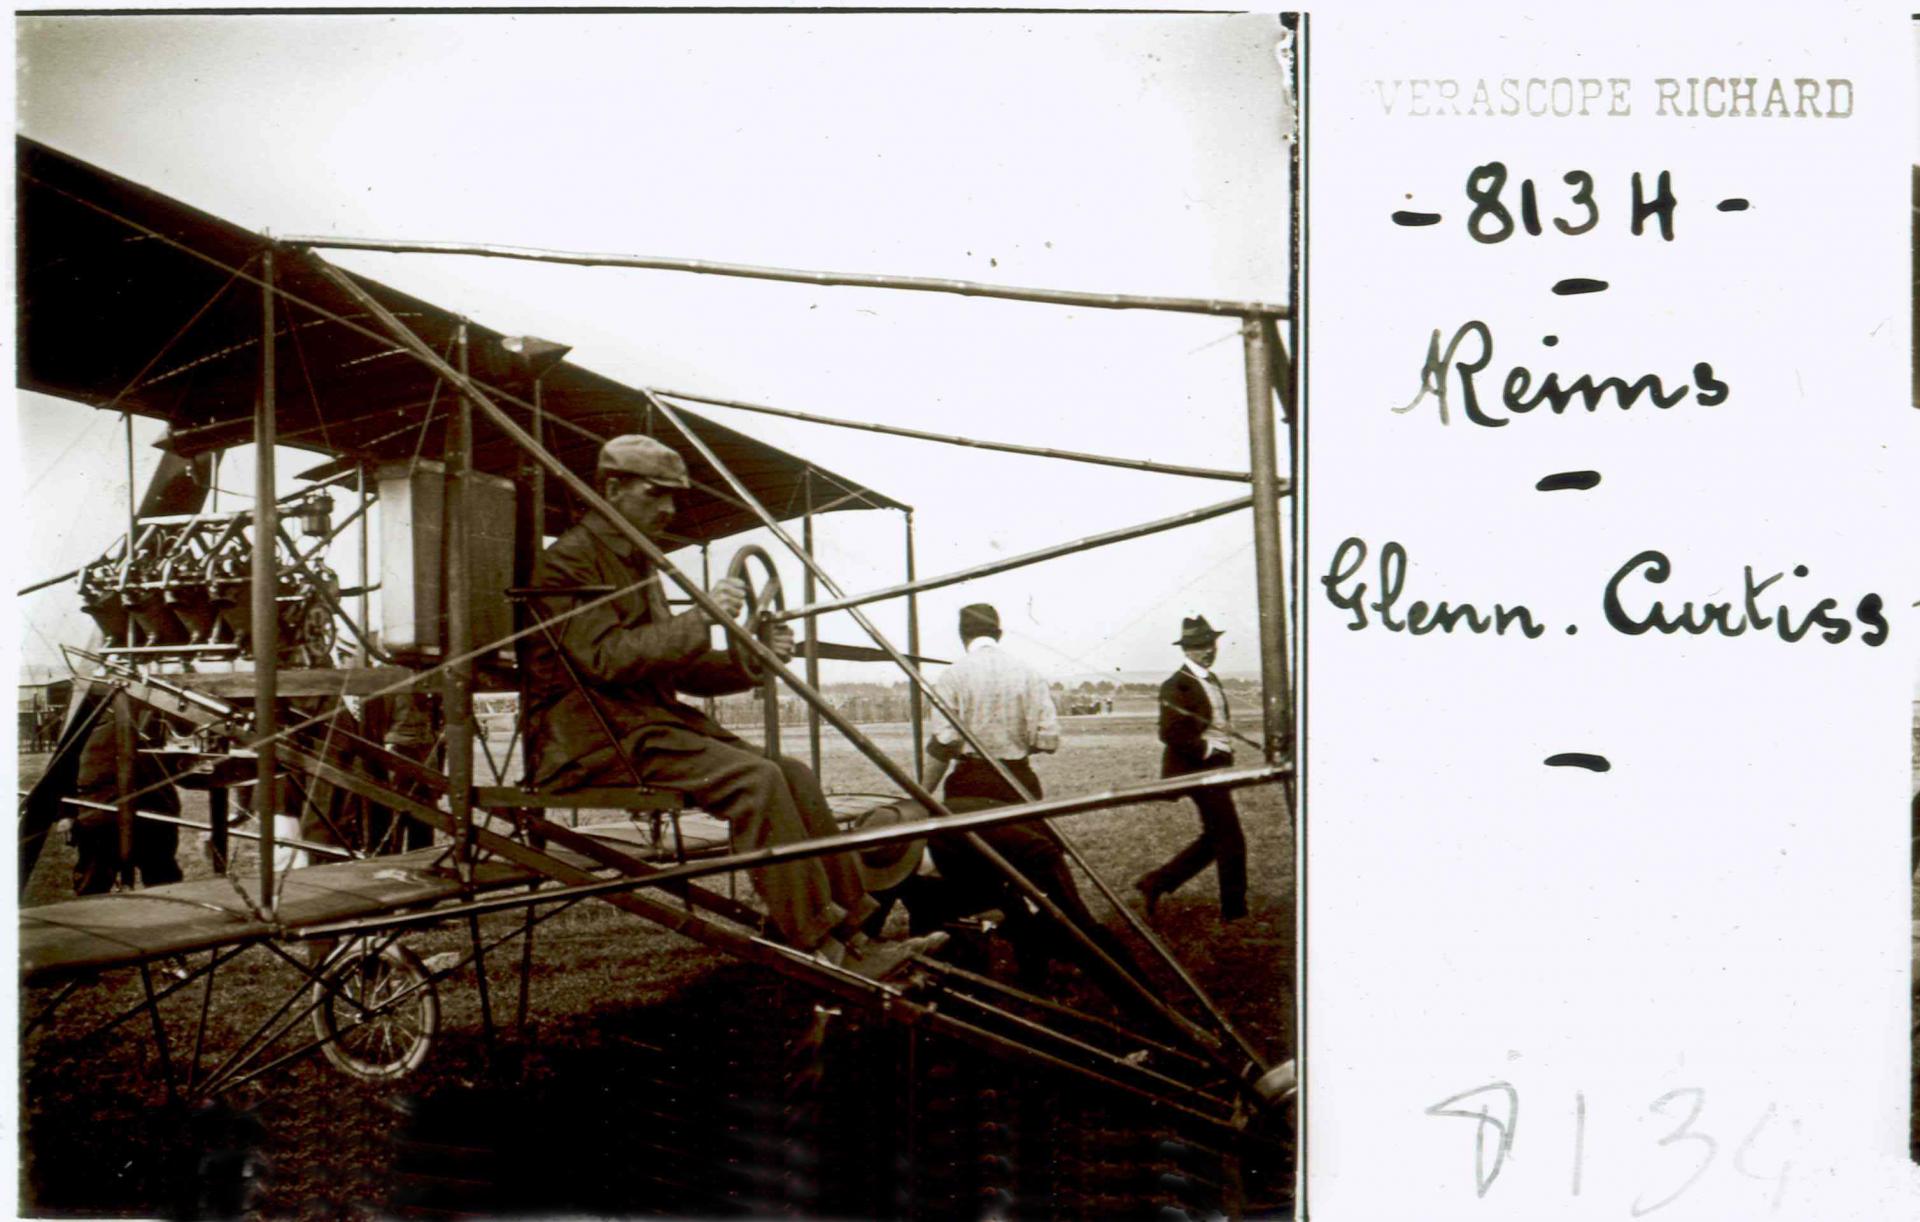 VERASCOPE RICHARD
- 813 H -
Reims
Glenn. Curtiss
813